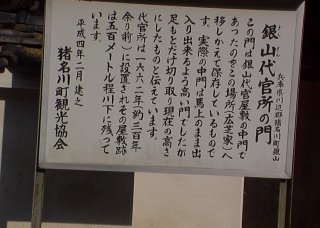 銀山代官所の門
兵庫県川辺郡猪名川町銀山
この門は銀山代官屋敷の中門で
あったのをこの場所(広芝家)へ
移しかえて保存しているもので
す。実際の中門は馬上のまま出
入り出来るよう高い門でしたが
足もとだけ切り取り現在の高さ
にしたものと伝えています。
代官所は一六六二年(約三百年
余り前)に設置されその屋敷跡
は五百メートル程川下に残って
います。
平成四年二月 建之
猪名川町観光協会